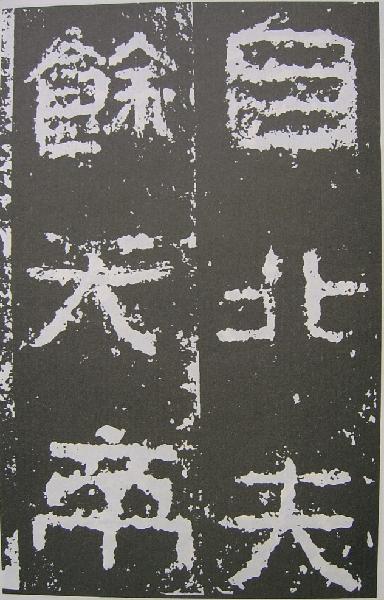 自北夫
餘天帝